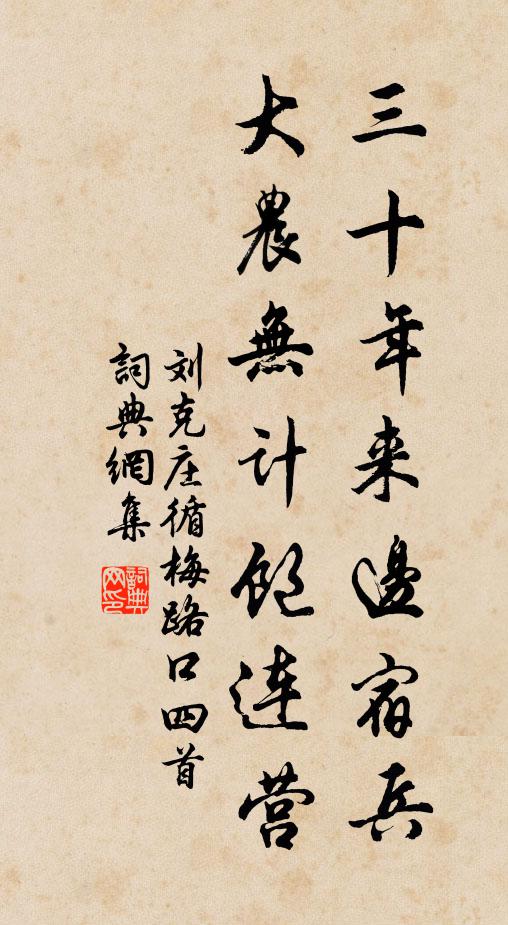 三十年来邊宿兵
大農無计飽连营
刘克庄循梅路口四首
詞典網集
詞典
网印